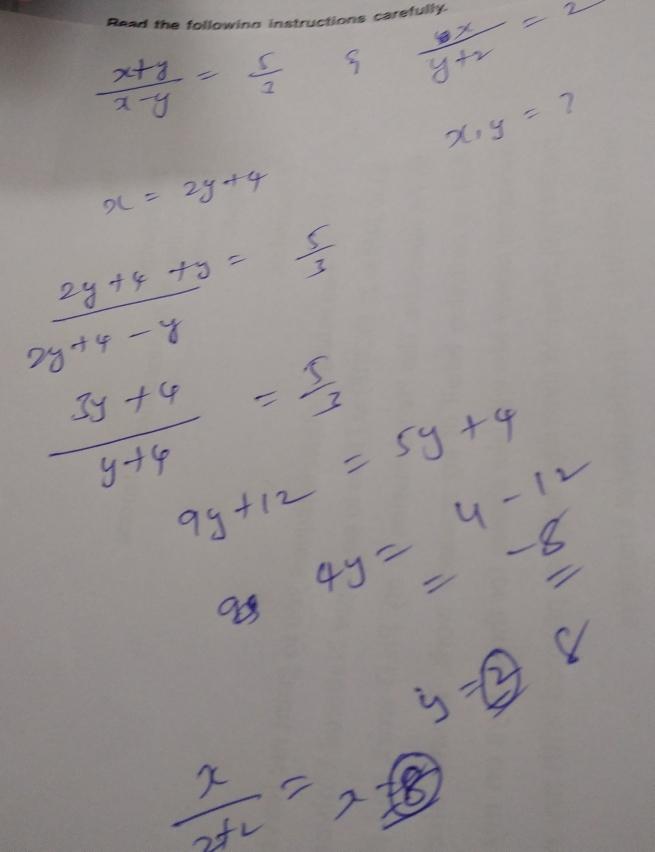 Read the following instructions carefully.
x+y / x-y = 5/3 & x / y+2 = 2
x, y = ?
x = 2y+4
2y+4+y / 2y+4-y = 5/3
3y+4 / y+4 = 5/3
9y+12 = 5y+4
4y = 4-12
= -8
8
y = 2
x / 2+2 = x = 8